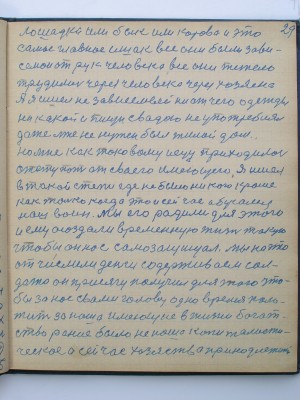 29
лошадка или бык или корова и это
самое главное ишак все они были зави-
сими от рук человека все они тяжело
трудились через человека через хозяина
А я ишел не зависевшей ни от чего одежды
ни какой и пищи сваего не употреблял
даже мне не нужен был жилой дом.
но мне как таковому
от своего имеющего, Я ишел
в такой степи где не было никого кроме
как только когда это и сейчас
наш воин. Мы его родили для этого
и ему создали временную жизнь такую
чтобы он нас самозащищал. мы на это
отчислили деньги содерживаем сол-
дата он присягу получил для этого это-
бы за нас свали голову, одно время поло-
жить за наша имеющую в жизни богат-
ство ранее было не наша капиталисти-
ческое а сейчас хозяйства принадлежит